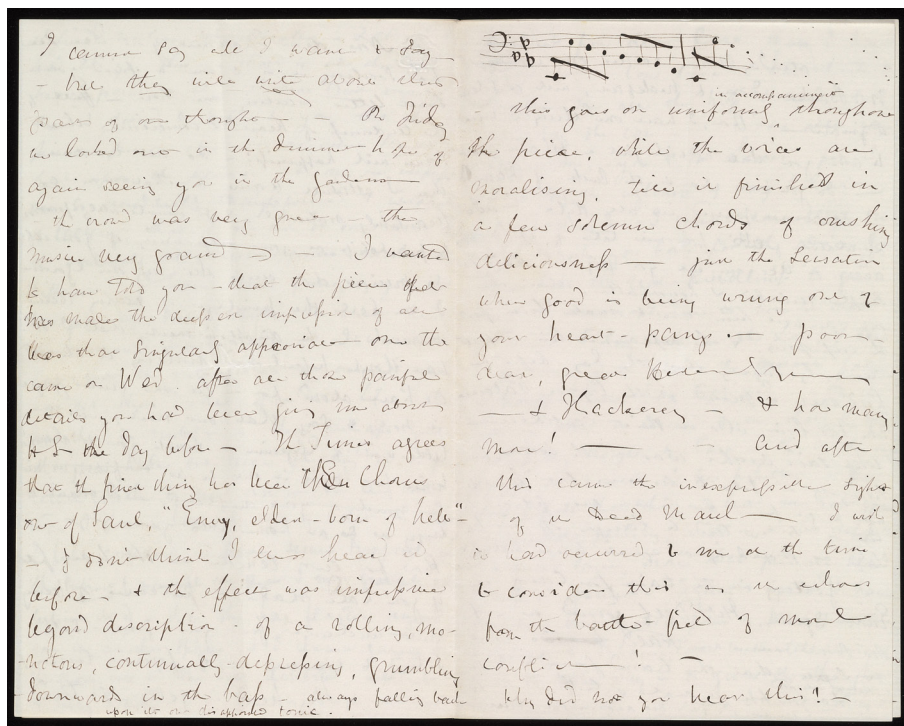 I cannot say all I want to say
- but they will not
of our thoughts — On Friday
we looked out in the dimmest hope of
again seeing you in the gardens
th crowd was very great — the
music very grand — I wanted
to have told you — that the piece that
has made the deepest impression of all
was that singularly appropriate one tht
came on Wed. after all those painful
details you had been giving me about
the day before — Th Times agrees
that th finest thing has been the Chorus
out of Saul, "Envy, eldest-born of hell" -
- I don't think I ever heard it
before - & th effect was impressive
beyond description - of a rolling, mo-
notonous, continually-depressing, grumbling
downwards in th bass - always falling back
upon its own disappointed tonic.
- this goes on uniformly in accompaniment throughout
the piece, while the voices are
moralising, till it finishes in
a few solemn chords of crushing
deliciousness — just the sensation
when good is being wrung out of
your heart-pangs — poor
dear, great
— & Thackeray — & how many
more! — and after
this came the inexpressible
of th Dead March — I wish
it had occurred to me at th time
to consider this as th echoes
from th battle-field of moral
conflict — ! —
Why did not you hear this! —